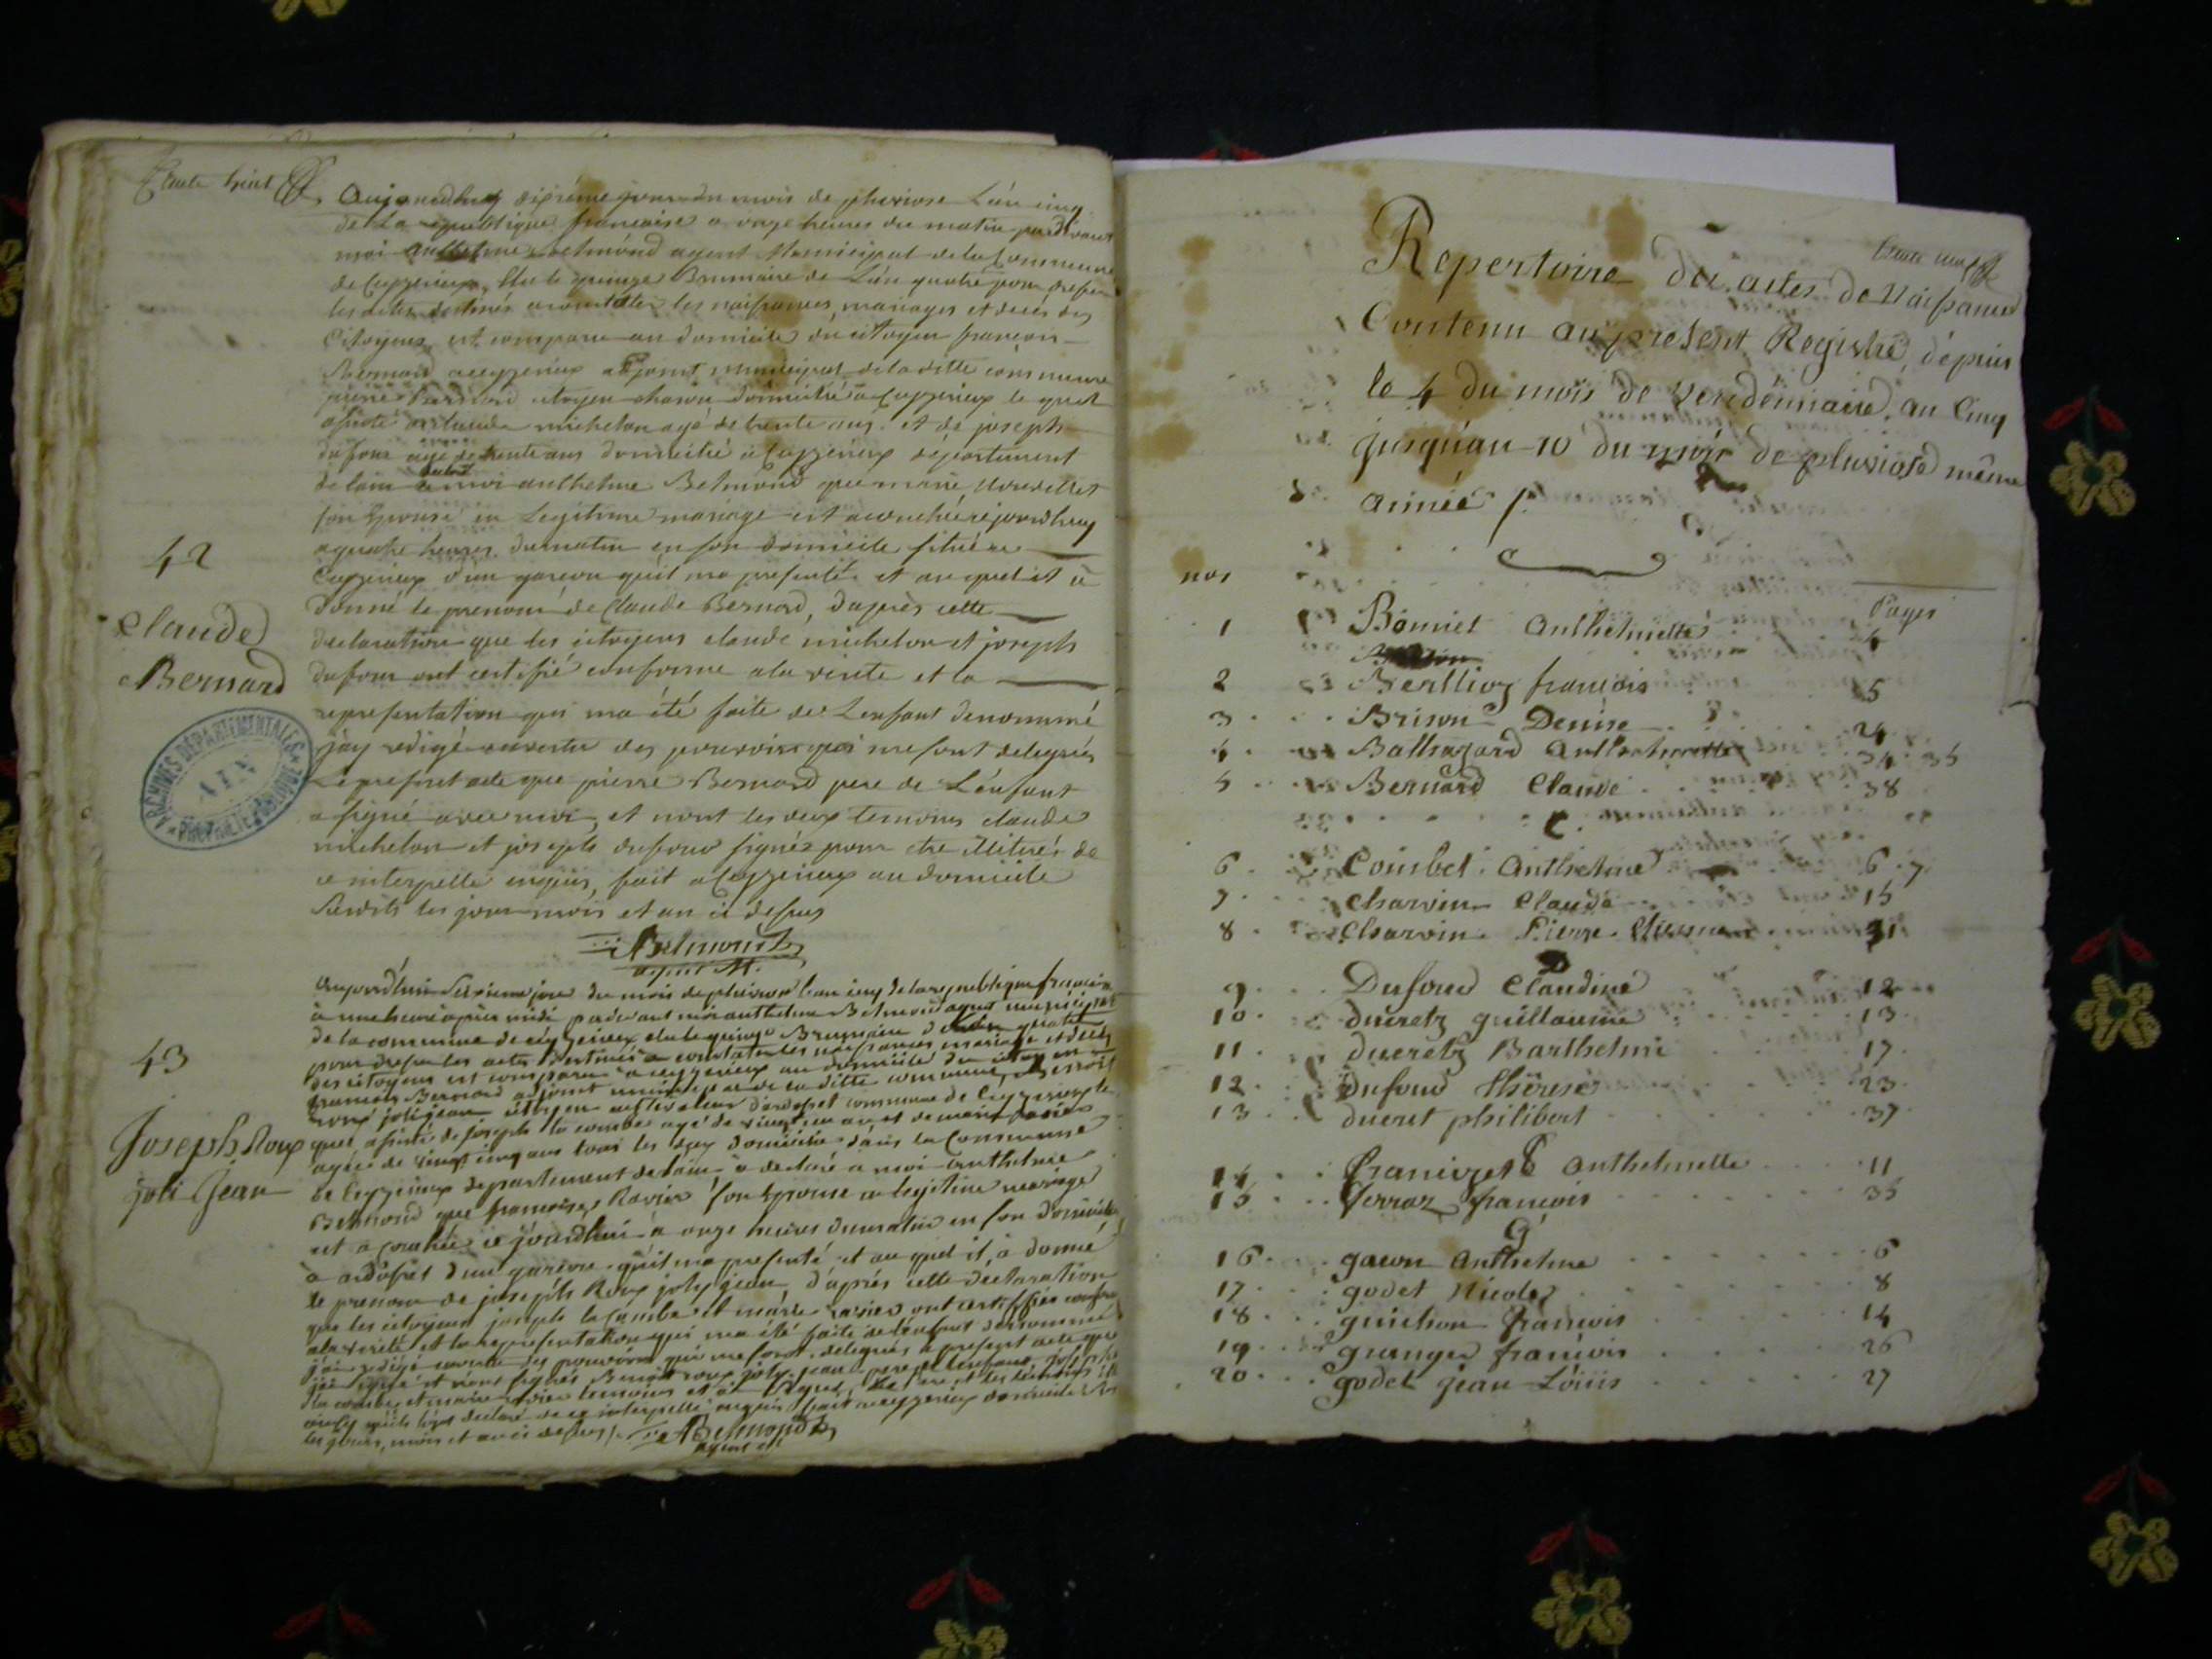 trente huit
Aujourdhuy dixième jour du mois de pluviose L'an cinq
de La republique française a onze heures du matin par devant
moi Anthelme Belmond agent Municipal de la Commune
de Ceyzerieux, Elu le quinze Brumaire de L'an quatre pour dresser
les actes destinés a constater les naissances, mariages et decés des
Citoyens est comparu au domicile du citoyen françois
Bernard a ceyzerieux adjoint municipal de la ditte commune
pierre Bernard citoyen domicilié a Ceyzerieux le quel
assisté de claude michelon agé de trente ans et de joseph
dufour agé de trente ans domicilié a Ceyzerieux département
de lain a moi anthelme Belmond que marie
son Epouse en Legitime mariage est acouchée cejourdhuy
a quatre heures du matin en son domicile situé a
Ceyzerieux d'un garcon quil ma presenté et au quel il a
donné le prenom de Claude Bernard, d'après cette
declaration que les citoyens claude michelon et joseph
dufour ont certifié conforme a la verité et la
representation qui ma été faite de L'enfant denommé
jày redigé en vertu des pouvoirs qui me sont delegués
Le present acte que pierre Bernard pere de L'enfant
a signé avec moi, et nont les deux temoins claude
michelon et joseph dufour signés pour etre illitirés de
ce interpellé enquis, fait a Ceyzerieux au domicile
susdits les jour mois et an ci dessus
Belmond
agent M.
42
Claude
Bernard
ARCHIVES DÉPARTEMENTALES
AIN
aujourd'hui dixieme jour du mois de pluviose l'an cinq de la republique francaise
à une heure après midi pardevant moi anthelme Belmond agent municipal
de la commune de ceyzerieux elu le quinze Brumaire de l'an quatre
pour dresser les actes destinés a constater les naissances mariage et decés
des citoyens est comparu a ceyzerieux au domicile du citoyen
francois Bernard adjoint municipal de la ditte commune, Benoit
roux joli jean citoyen cultivateur d'ardosset commune de Ceyzerieux le
quel assisté de joseph la combe agé de vingt un ans et de marie ravier
agée de vingt cinq ans tous les deux domicilié dans la Commune
de Ceyzerieux departement de lain a declaré a moi anthelme
Belmond que francoise Ravier son Epouse en legitime mariage
est acouchée ce jourdhui à onze heures du matin en son domicile
a ardosset d'un garcon quil ma presenté et au quel il à donné
le prenom de joseph Roux joly jean, d'après cette declaration
que les citoyens joseph la Combe et marie ravier ont certiffiés conforme
a la verité et la representation qui ma été faite de lenfant denommé
j'ai redigé en vertu des pouvoirs qui me sont delegués le present acte que
jai signé et nont signés Benoit roux joly jean pere de lenfant, joseph
la combe et marie ravier temoins
de ce interpellé enquis fait a ceyzerieux domicile
les jours, mois et an ci dessus
Belmond
agent M
43
Joseph Roux
joli Jean
trente neuf
Repertoire des actes de Naissance
Contenu au present Registre, dépuis
le 4 du mois de Vendémiaire, an Cinq
jusqu'au 10 du mois de pluviose même
année
nos
Pages
1 Bonnet Anthelmette 4
2 Berlioz francois 5
3 Brison Denise 24
4 Balthazard Anthelmette 34 35
5 Bernard Claude 38
C.
6 Coinbet Anthelme 6 7
7 Charvin Claude 15
8 Charvin Pierre 31
D
9 Dufour Claudine 12
10 ducretz guillaume 13
11 ducretz Barthelmi 17
12 Dufour thérese 23
13 ducret philibert 37
14 Anthelmette 11
15 ferraz francois 35
G
16 gacon Anthelme 6
17 godet Nicolas 8
18 guichon francois 14
19 granger francois 26
20 godet jean Lóuis 27